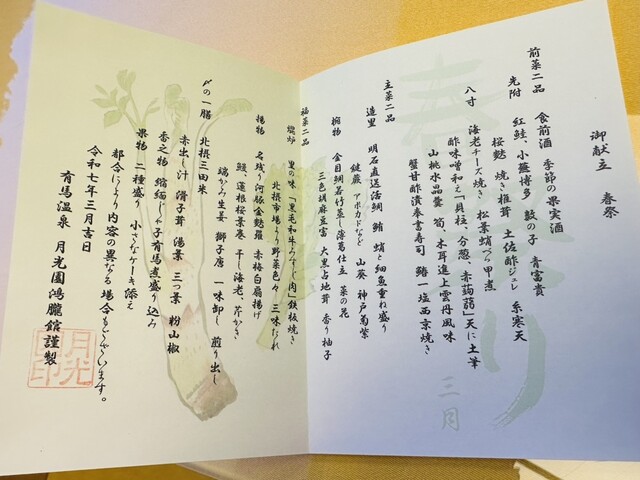 御献立 春祭
前菜二品
食前酒 季節の果実酒
先附 紅鮭、小蕪博多 数の子 青富貴
桜麩 焼き椎茸 土佐酢ジュレ 糸寒天
八寸 海老チーズ焼き 松葉蛸つや煮
酢味噌和え「貝柱、分葱、赤蒟蒻」天に土筆
山桃水晶羹 筍、木耳進上雲丹風味
蟹甘酢漬奉書寿司 鰆一塩西京焼き
主菜二品
造里 明石直送活鯛 鮪 蛸と細魚重ね盛り
縫蕨 アボカドなど 山葵 神戸菊紫
椀物 金目鯛若竹蒸し薄葛仕立 菜の花
三色胡麻豆富 大黒占地茸 香り柚子
福菜二品
焜炉 里の味「黒毛和牛みすじ肉」鉄板焼き
北摂市場より野菜色々 三味だれ
揚物 名残り河豚金麩羅 赤梅白扇揚げ
鰻、蓮根桜景巻 干し海老、芹かき
端から生姜 獅子唐 一味卸し 煎り出し
〆の一膳 北摂三田米
赤出し汁 滑子茸 湯葉 三つ葉 粉山椒
香之物 縮緬じゃ子有馬煮盛り込み
果物 二種盛り 小さなケーキ添え
都合により内容の異なる場合もございます。
令和七年三月吉日
有馬温泉 月光園鴻朧館謹製
春祭り
三月
月光園印